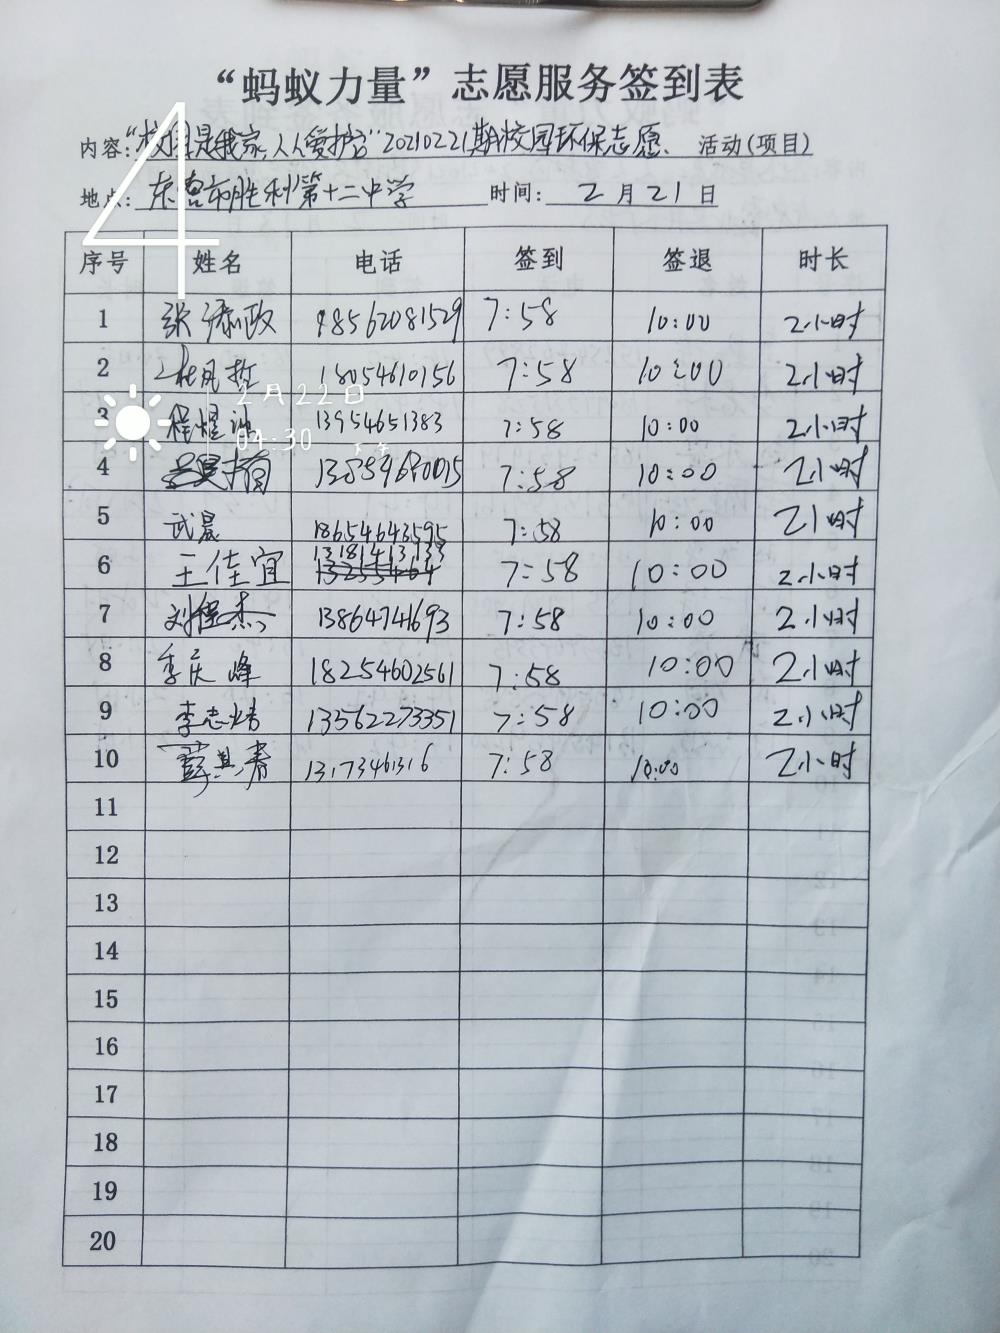 “蚂蚁力量”志愿服务签到表
内容:“校园是我家,人人爱护它”20210221期校园环保志愿、 活动(项目)
地点: 东营市胜利第十二中学 时间: 2月21日
4
序号 姓名 电话 签到 签退 时长
1 张 政 18562081529 7:58 10:00 2小时
2 杜凡哲 18054610156 7:58 10:00 2小时
2月22日
3 程煜 13954651383 7:58 10:00 2小时
04:30
4 7:58 10:00 2小时
5 武晨 18654643595 7:58 10:00 2小时
6 王佳宜 7:58 10:00 2小时
7 刘程杰 13864741693 7:58 10:00 2小时
8 季庆峰 18254602561 7:58 10:00 2小时
9 李志 13562273351 7:58 10:00 2小时
10 薛其春 7:58 10:00 2小时
11
12
13
14
15
16
17
18
19
20